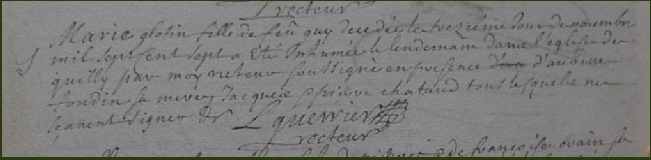 recteur
Marie glotin fille de feu guy decedée le troisième Jour de novembre
mil sept sent sept a été Inhumée le lendemain dans l'église de
quilly par moy recteur soussigné en presence d'aubine
fondin sa mere, Jacques chataud tous lesquels ne
scavent signer
L guerrier
recteur
de francoise sa